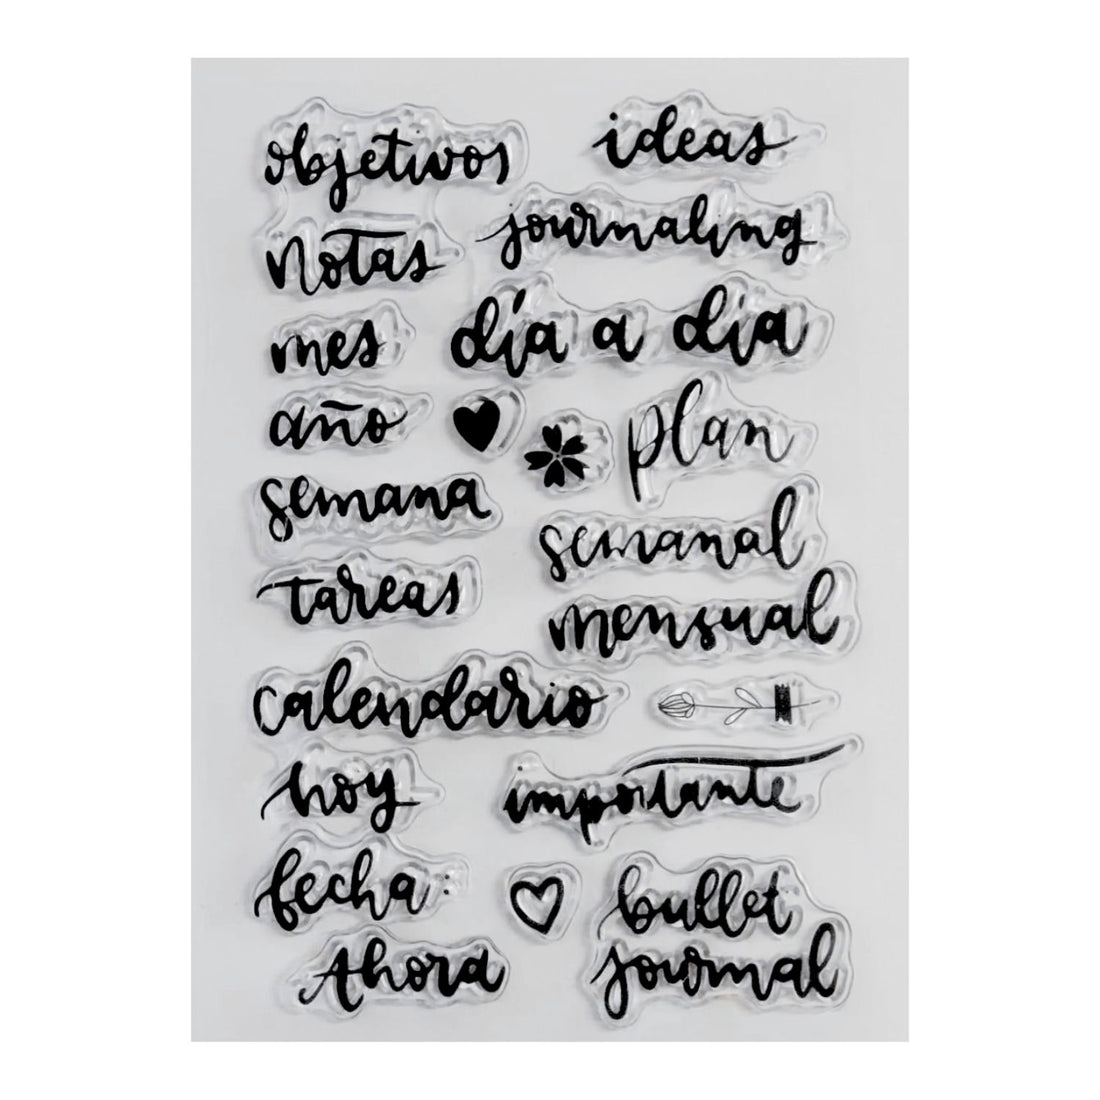 objetivos
ideas
journaling
notas
mes
día a día
año
plan
semana
semanal
tareas
mensual
calendario
hoy
importante
fecha:
bullet
journal
Ahora